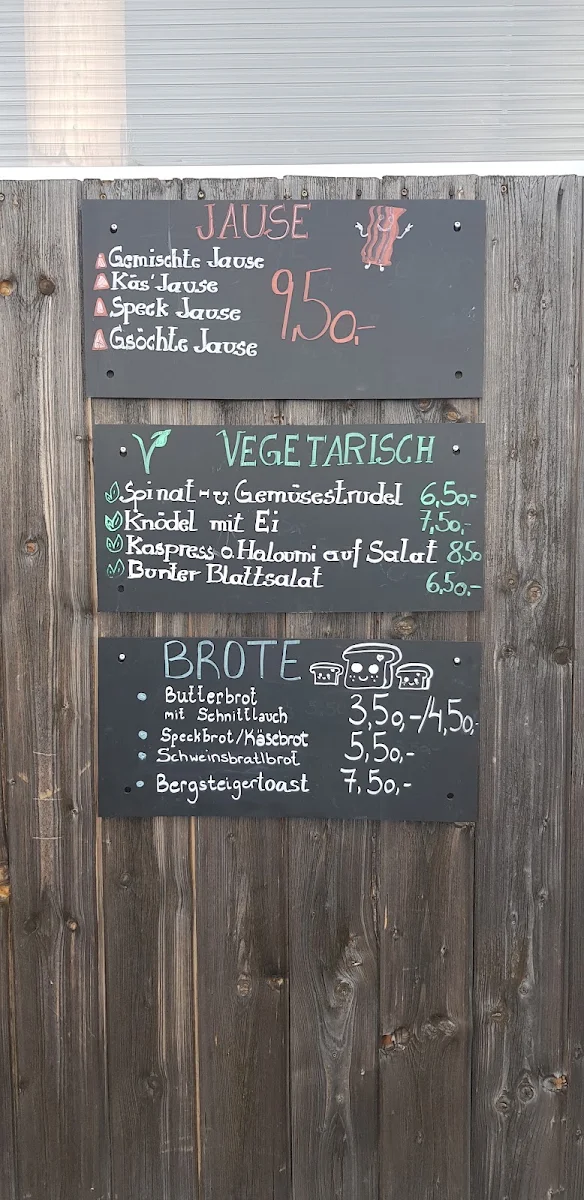 JAUSE
Gemischte Jause
Käs'Jause
Speck Jause
Gsöchte Jause
9,50,-
V VEGETARISCH
Spinat- u. Gemüsestrudel 6,50,-
Knödel mit Ei 7,50,-
Kaspress o. Haloumi auf Salat 8,50
Bunter Blattsalat 6,50,-
BROTE
Butterbrot
mit Schnittlauch 3,50,-/4,50,-
Speckbrot/Käsebrot 5,50,-
Schweinsbratlbrot
Bergsteigertoast 7,50,-